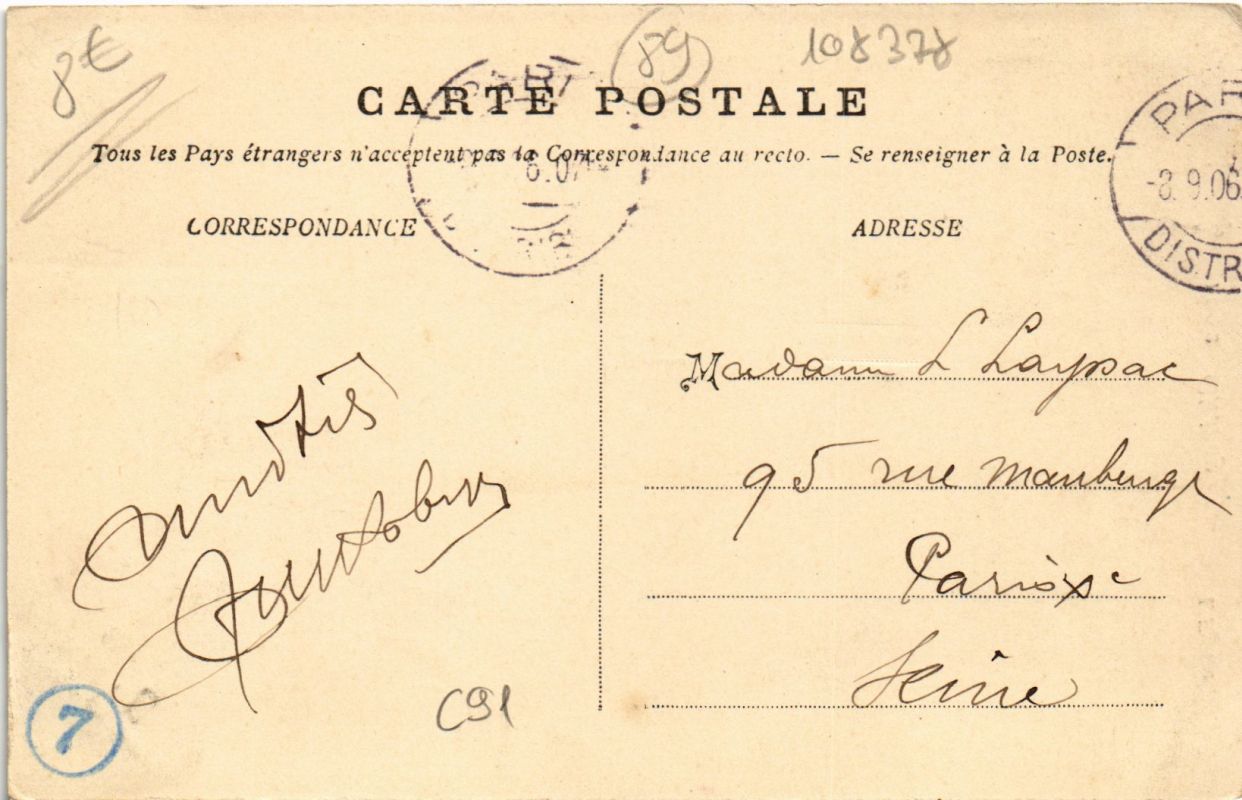 8€
89
108378
CARTE POSTALE
Tous les Pays étrangers n'acceptent pas la Correspondance au recto. — Se renseigner à la Poste.
PAR
-8.9.06
DISTR
CORRESPONDANCE
ADRESSE
Madame L Layssac
95 rue Maubeuge
Paris Xe
Seine
Amitiés
C91
7